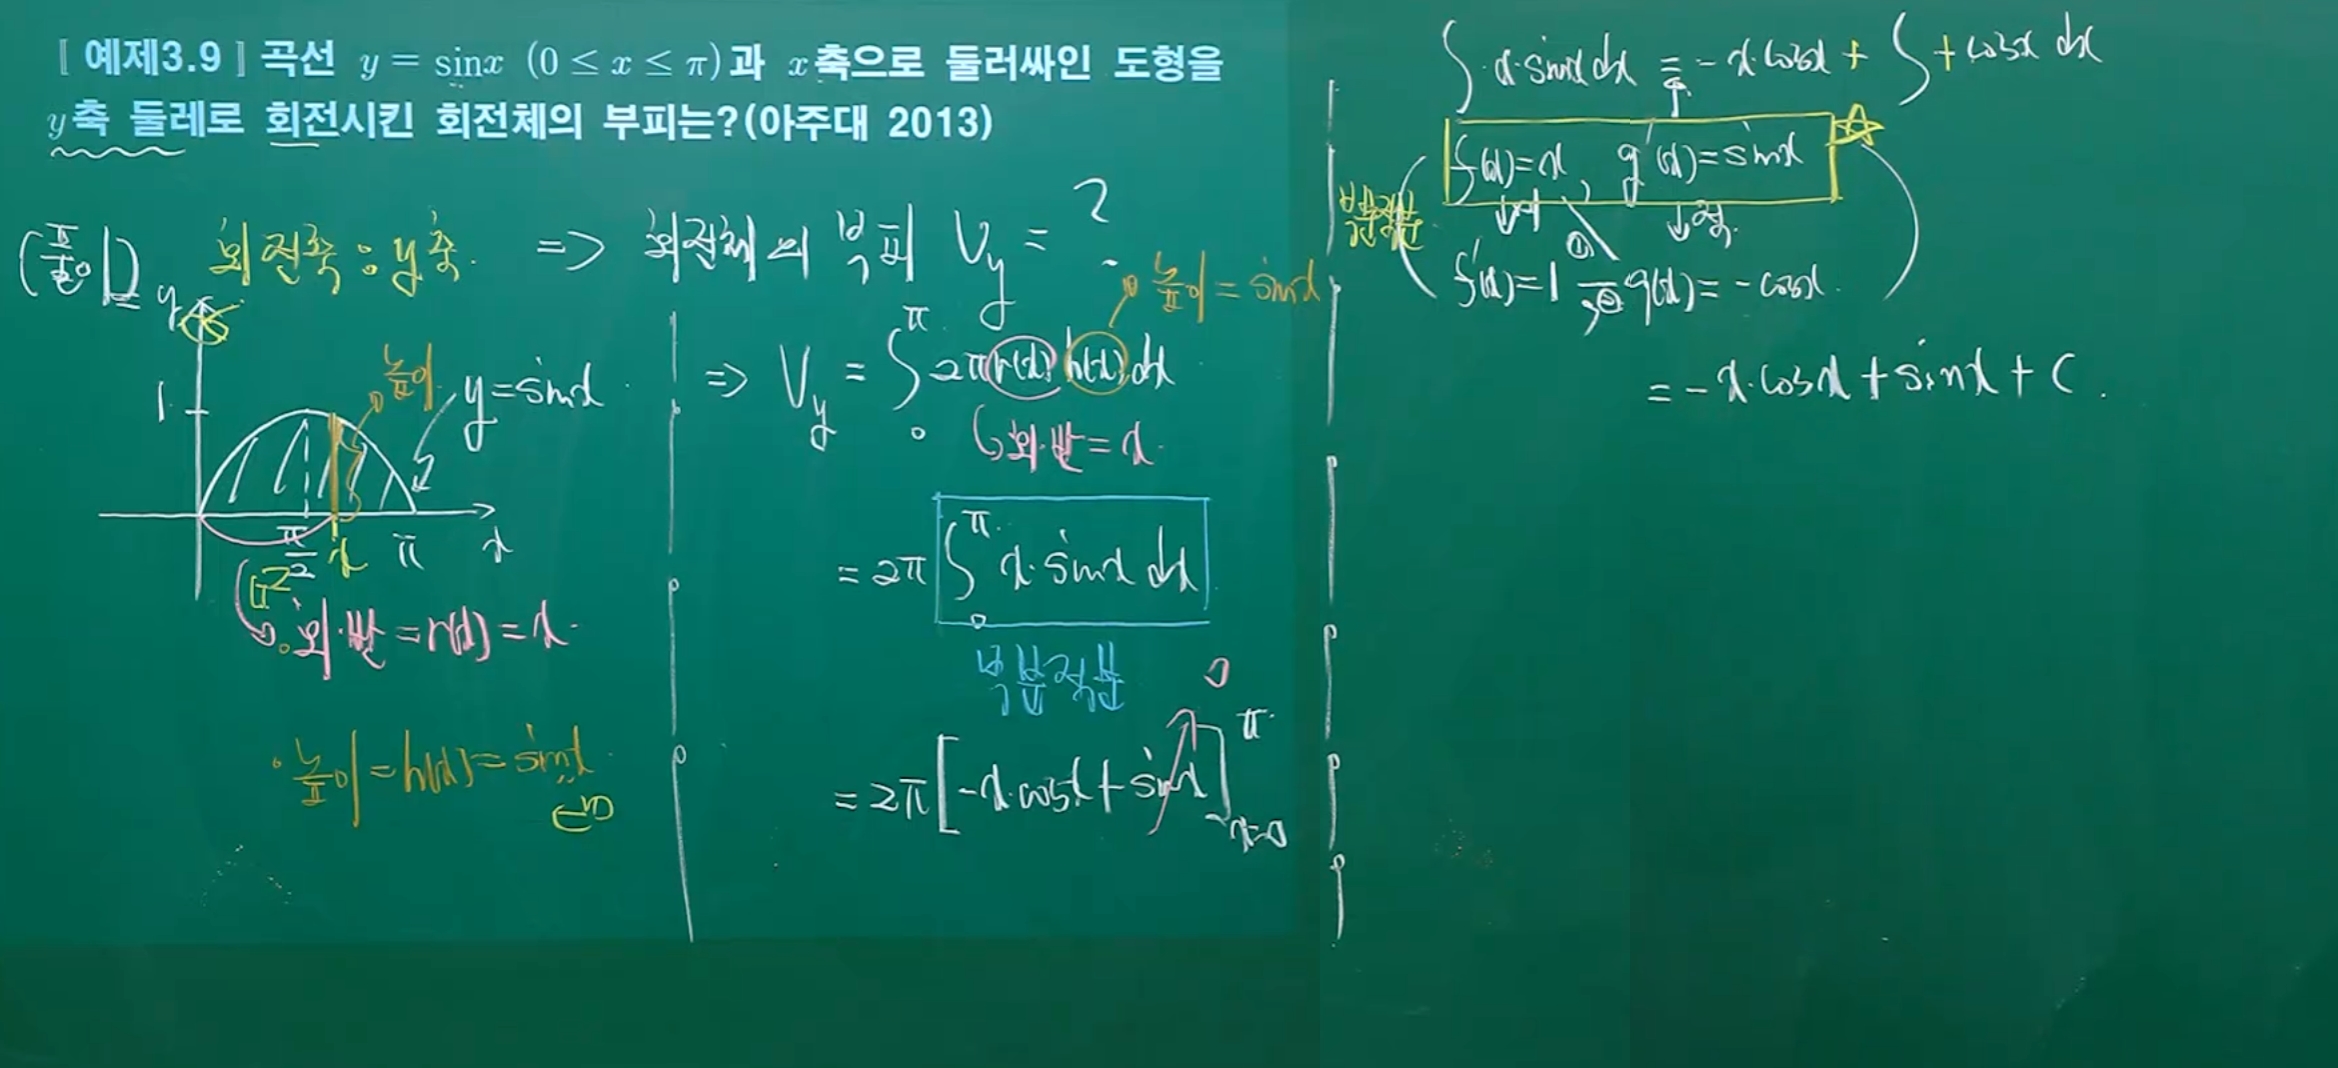 [ 예제3.9 ] 곡선 y = sinx (0 ≤ x ≤ π)과 x축으로 둘러싸인 도형을
y축 둘레로 회전시킨 회전체의 부피는?(아주대 2013)
(풀이)
회전축 : y축 ⇒ 회전체의 부피 V_y = ?
y
1
높이
y = sinx
π/2
x
π
x
회·반 = r(x) = x
높이 = h(x) = sinx
⇒ V_y = ∫₀^π 2π r(x) h(x) dx
높이 = sinx
회·반 = x
= 2π ∫₀^π x·sinx dx
부분적분
= 2π [ -x·cosx + sinx ]_{x=0}^π
0
∫ x·sinx dx = -x·cosx + ∫ + cosx dx
부분적분
f(x) = x g'(x) = sinx ☆
↓미 ① ↓적
f'(x) = 1 ② g(x) = -cosx
= -x·cosx + sinx + C.